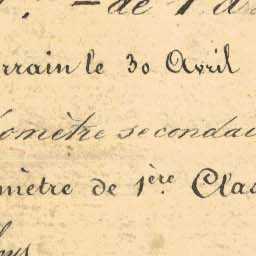 de 1
rrain le 30 Avril
omètre secondai
mètre de 1ère Clas